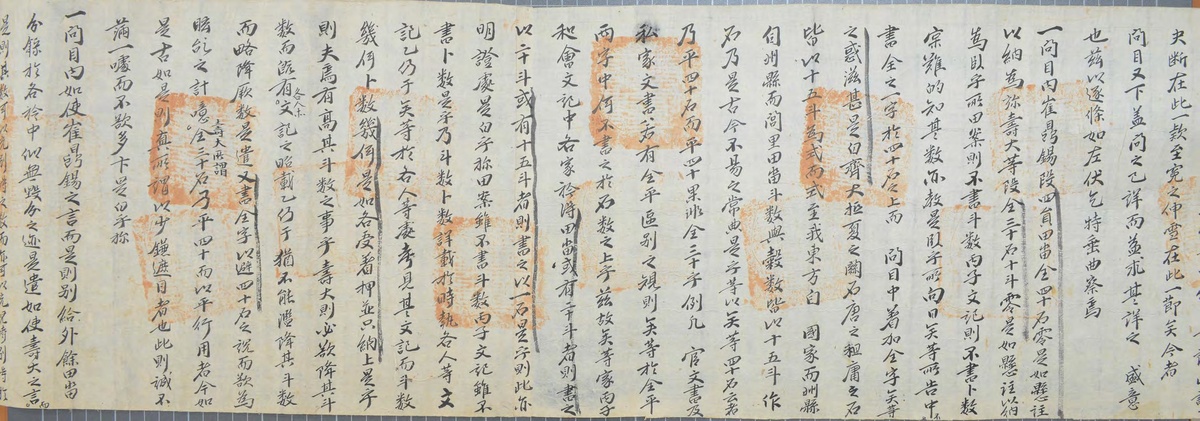 史斷在此一款至寃之仲雪在此一節矣今者
問目又下盖問之已詳而益求其詳之 盛意
也玆以逐條如左伏乞特垂曲察焉
一問目內崔鼎錫段四負田畓全四十石零是如懸註
以納爲㫆壽大等段全三十石十斗零是如懸註以納
爲臥乎所田案則不書斗數丙子文記則不書卜數
宗難的知其數亦敎是臥乎所向日矣等所告中
書全之一字於四十石之上而 問目中着加全字矣等
之惑滋甚是白齊大抵夏之關石唐之租庸之石
皆以十五斗爲式而式至我東方自 國家而州縣
自州縣而閭里田畓斗數與穀數皆以十五斗作
石乃是古今不易之常典是乎等以矣等四十石云者
乃平四十石而平四十果非全三十乎例凡 官文書及
私家文書若有全平區別之規則矣等於全平
兩字中何不書之於石數之上乎玆故矣等家丙子
和會文記中各家衿得田畓或有二十斗者則書之
以二十斗或有十五斗者則書之以一石是乎則此亦
明證處是白乎㫆田案雖不書斗數丙子文記雖不
書卜數是乎乃斗數卜數詳載於時執各人等文
記乙仍于矣等於右人等處考見其文記而斗數
幾何卜數幾何是如各受着押並只納上是乎
則夫焉有高其斗數之事乎壽大則必欲降其斗
數而旣有各人等文記之昭載乙仍于猶不能濫降其斗數
而略降厥數是遣又書全字以避四十石之說而欲爲
眩亂之計噫壽大所謂全三十石乃平四十而以平行用者今如
是古如是則眞所謂以少鎌遮目者也此則誠不
滿一噱而不欲多卞是白乎㫆
一問目內如使崔鼎錫之言而是則別給外餘田畓
分錄於各衿中似無幾分之迹是遣如使壽大之言而
是則其數可以充